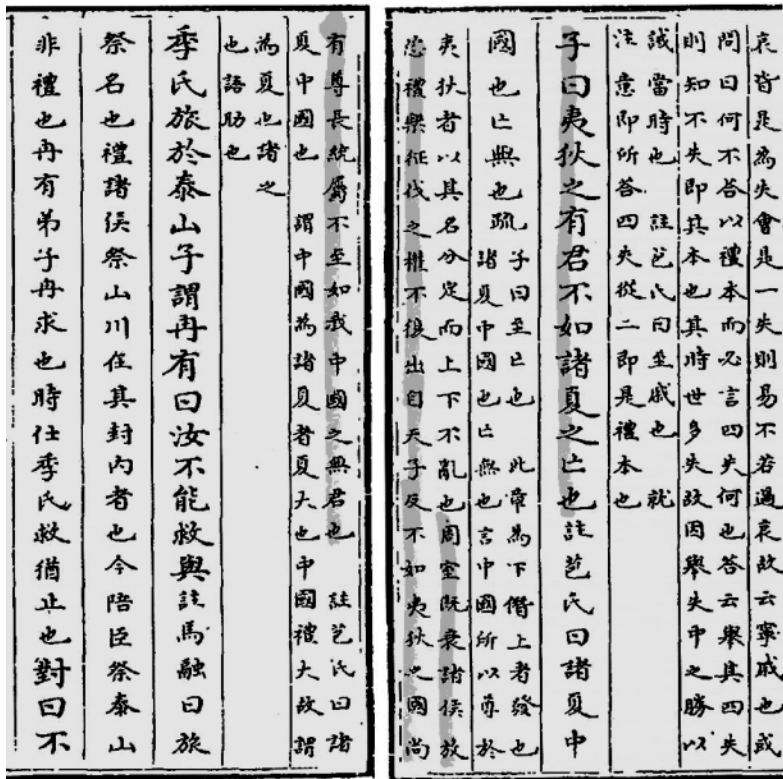 哀皆是為失會是一失則易不若過哀故云寧戚也或
問曰何不答以禮本而必言四失何也答云舉其四失
則知不失即其本也其時世多失故因舉失中之勝以
誡當時也 註苞氏曰至戚也 就
注意即所答四失從二即是禮本也
子曰夷狄之有君不如諸夏之亡也註苞氏曰諸夏中
國也亡無也疏子曰至亡也 此章為下僭上者發也
諸夏中國也亡無也言中國所以尊於
夷狄者以其名分定而上下不亂也周室既衰諸侯放
恣禮樂征伐之權不復出自天子反不如夷狄之國尚
有尊長統屬不至如我中國之無君也 註苞氏曰諸
夏中國也 謂中國為諸夏者夏大也中國禮大故謂
為夏也諸之
也語助也
季氏旅於泰山子謂冉有曰汝不能救與註馬融曰旅
祭名也禮諸侯祭山川在其封內者也今陪臣祭泰山
非禮也冉有弟子冉求也時仕季氏救猶止也對曰不